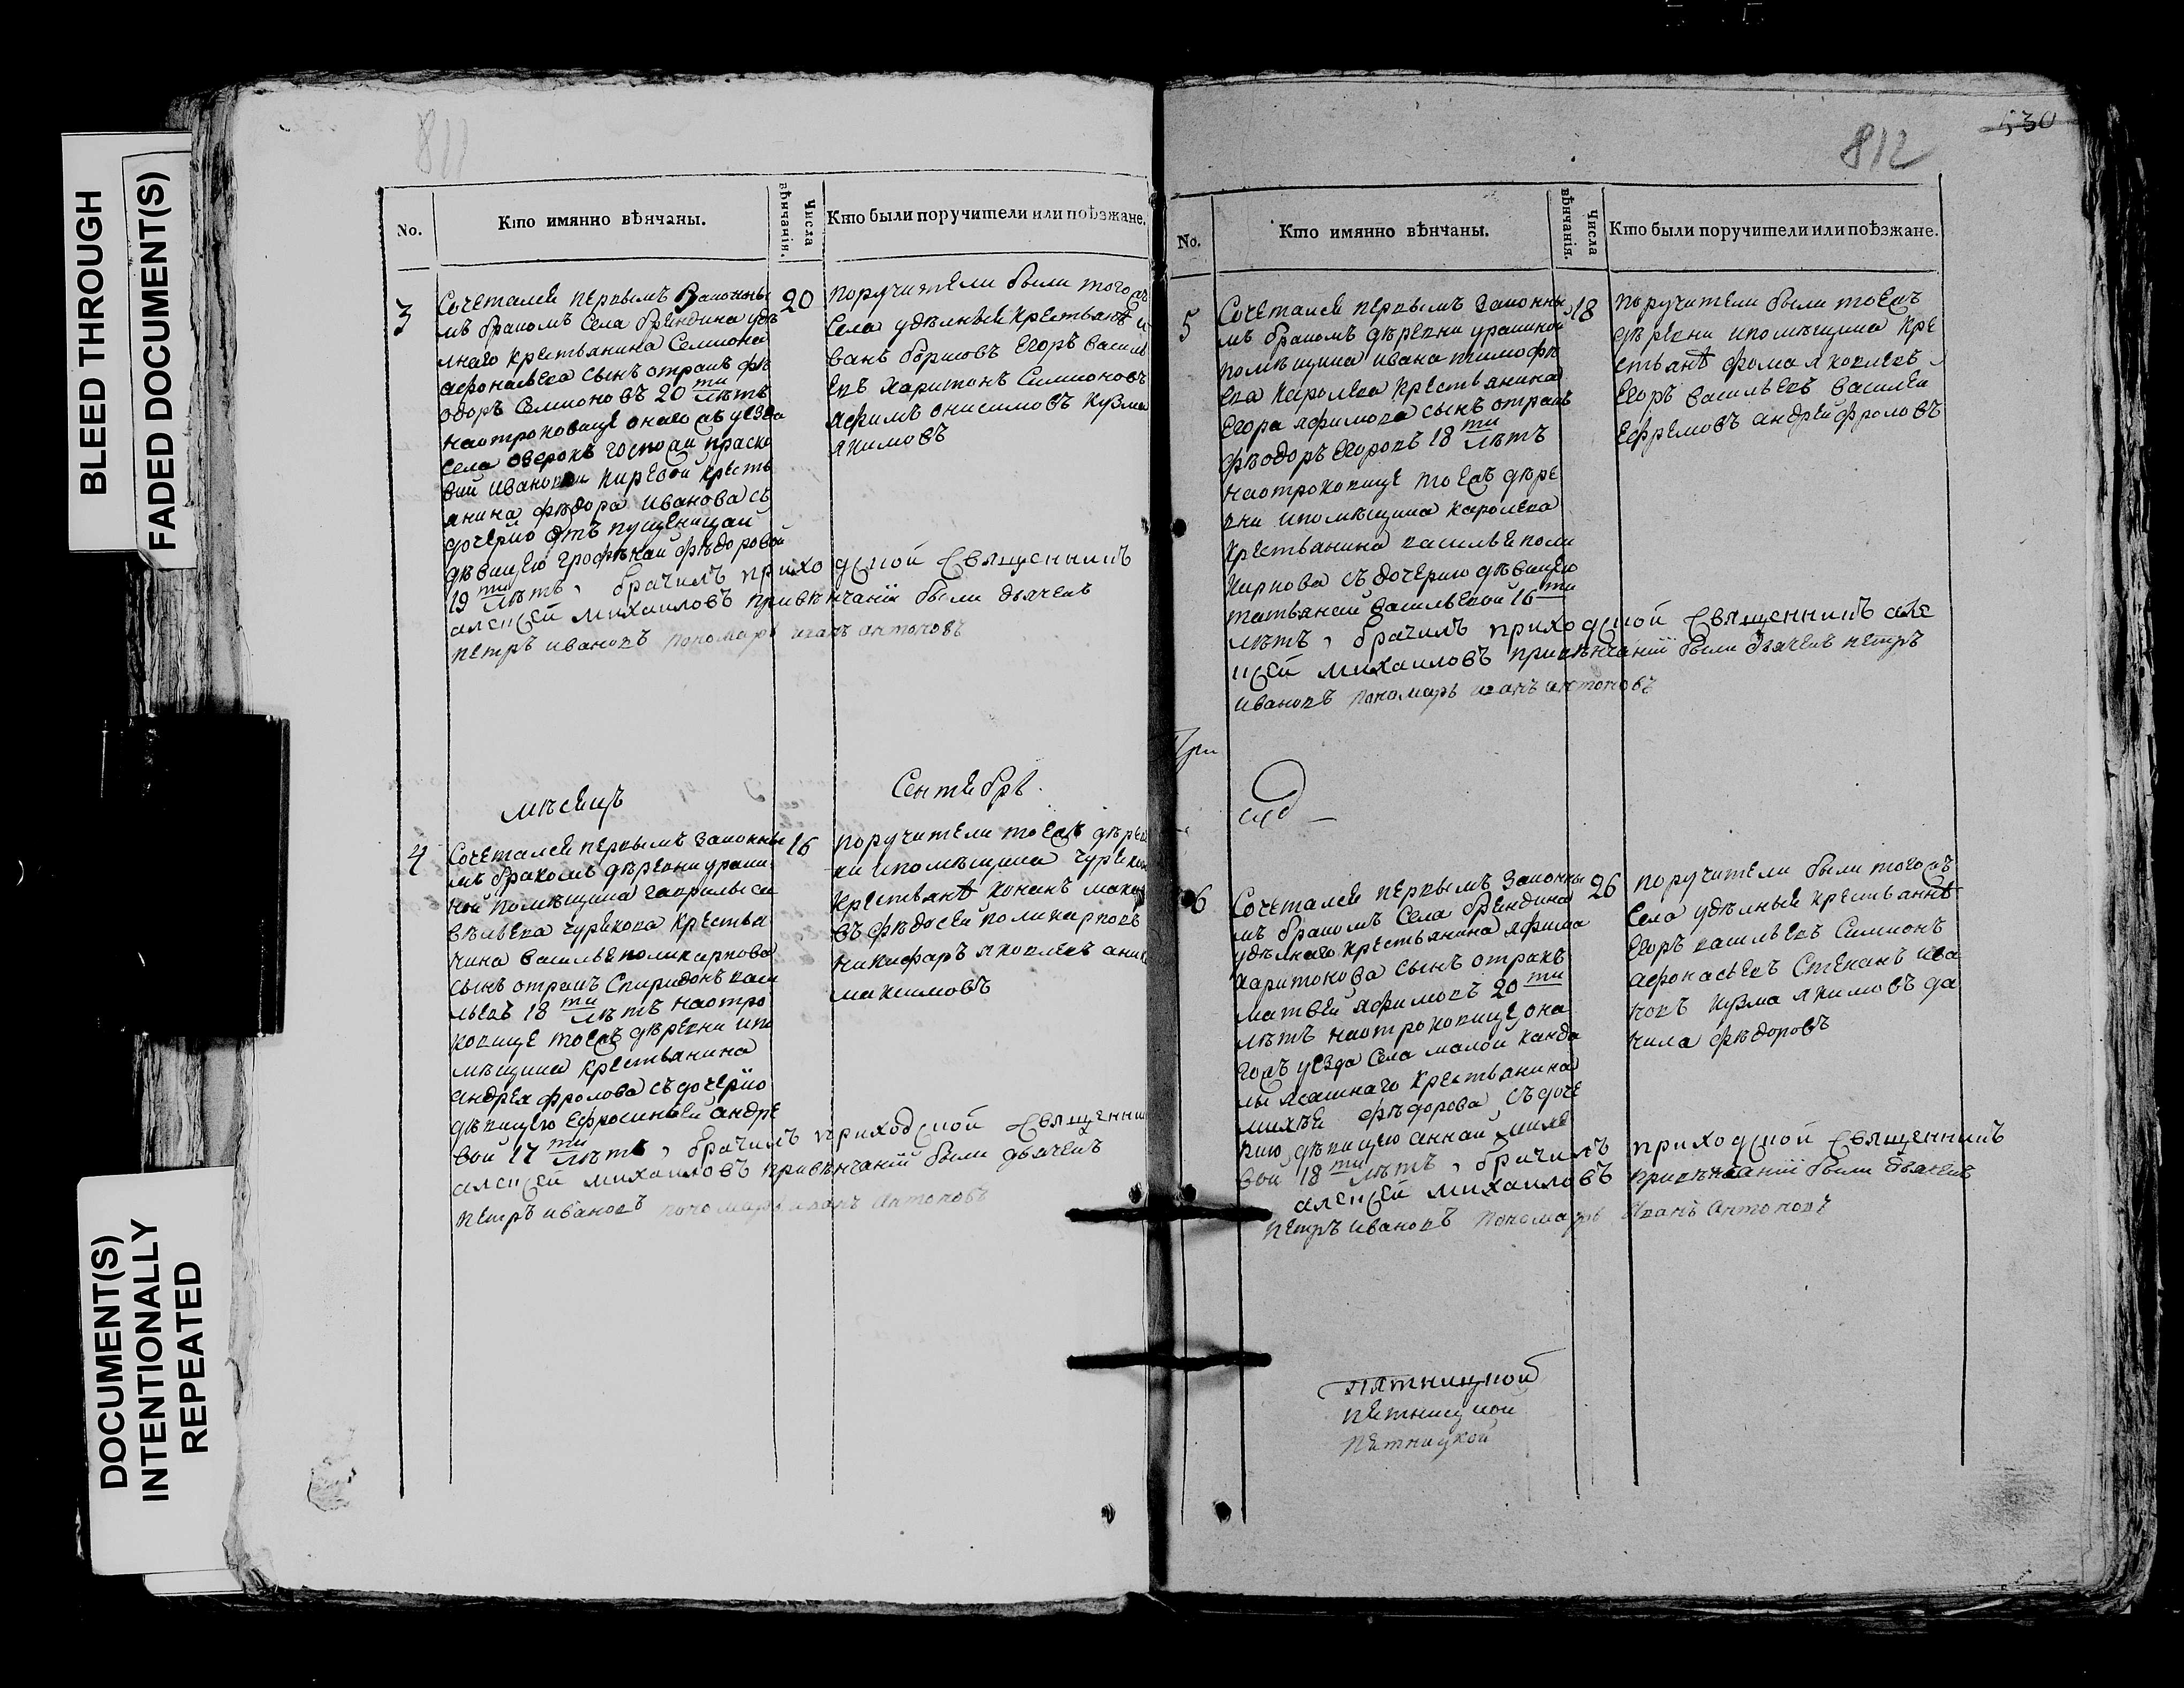 BLEED THROUGH
FADED DOCUMENT(S)
DOCUMENT(S)
INTENTIONALLY
REPEATED
811
No.
Кто имянно вѣнчаны.
Числа вѣнчанія.
Кто были поручители или поѣзжане.
3
20
Сочетался первымъ Законны
мъ бракомъ Села брендина удѣ
лнаго крестьянина Семиона
афонасьева сынъ отракъ фѣ
одоръ Семионовъ 20 ти лѣтъ
наотроковице онаго жъ уезда
Села озерокъ госпожи праско
вьи ивановни киревой кресть
янина фѣдора иванова съ
дочерию отъ пущеницаи
дѣвицею Грофѣнаи фѣдоровой
19 ти лѣтъ, брачилъ приходской Священникъ
алексей михаиловъ привѣнчании были дьячекъ
петръ ивановъ пономарь иванъ антоновъ
Поручители были того жъ
Села удѣлныя крестьянѣ и
ванъ борисовъ Егоръ васил
евъ харитонъ Симионовъ
яфимъ онисимовъ кузма
якимовъ
мѣсяцъ
Сентебрь.
4
16
Сочетался первымъ Законны
мъ бракомъ дѣревни ураки
ной помѣщика гаврилы си
вѣльева чурикова крестья
нина василье поликарпова
сынъ отракъ Спиридонъ васи
льевъ 18 ти лѣтъ наотро
ковице тоежъ дѣревни ипо
мѣщика крестьянина
андрея фролова съ дочерию
дѣвицею Ефросиньей андре
вой 17 ти лѣтъ, брачилъ приходской Священни
алексей михаиловъ привѣнчаний были дьячекъ
петръ ивановъ пономарь иванъ антоновъ
поручители тоежъ дѣрев
ни ипомѣщика чурикова
крестьянѣ конанъ мака
въ фѣдосей поликарповъ
никифаръ яковлевъ
максимовъ
812
530
No.
Кто имянно вѣнчаны.
Числа вѣнчанія.
Кто были поручители или поѣзжане.
5
18
Сочетался первымъ Законны
мъ бракомъ дѣревни уракиной
помѣщика ивана тимофѣ
ева каролева крестьянина
Егора яфимова сынъ отракъ
фѣодоръ Егоровъ 18 ти лѣтъ
наотроковице тоежъ дѣре
вни ипомѣщика каролева
крестьянина василье поли
карпова съ дочерию дѣвицею
татьянай васильевой 16 ти
лѣтъ, брачилъ приходской Священникъ але
ксей михаиловъ привѣнчании были дьячекъ петръ
ивановъ пономарь иванъ антоновъ
Поручители были тоежъ
дѣревни ипомѣщика кре
стьянѣ фома яковлевъ
Егоръ васильевъ василеи
Ефремовъ андрей фроловъ
6
26
Сочетался первымъ Законны
мъ бракомъ Села брендина
удѣлнаго крестьянина яфима
харитонова сынъ отракъ
матвей яфимовъ 20 ти
лѣтъ наотроковице она
гожъ уезда Села малой канда
лы ясашнаго крестьянина
михѣи фѣдорова съ доче
рию дѣвицею аннай михѣ
вой 18 ти лѣтъ, брачилъ приходской Священникъ
алексей михаиловъ привѣнчании были дьячекъ
петръ ивановъ пономарь иванъ антоновъ
поручители были тогожъ
Села удѣлныя крестьянѣ
Егоръ васильевъ Симионъ
афонасьевъ Степанъ ива
новъ кузма якимовъ да
нила фѣдоровъ
пятницкой
пятницкой
Пятницкой